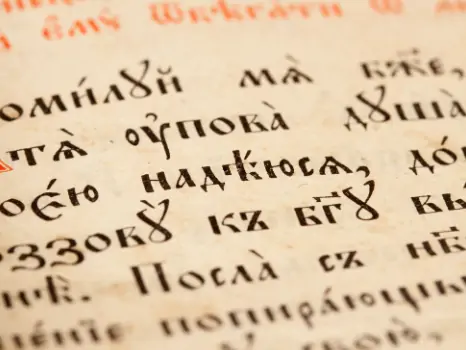 є҆мꙋ̀ ѿбѣгати ѿ
оми́лꙋй мѧ̀ бж҃е,
тѧ̀ ᲂу҆пова̀ дꙋша̀
оє́ю надѣ́юсѧ, до́
ззовꙋ̀ къ бг҃ꙋ вы́
нѣ̀. Посла̀ съ нб҃
ше́нїе попира́ющы